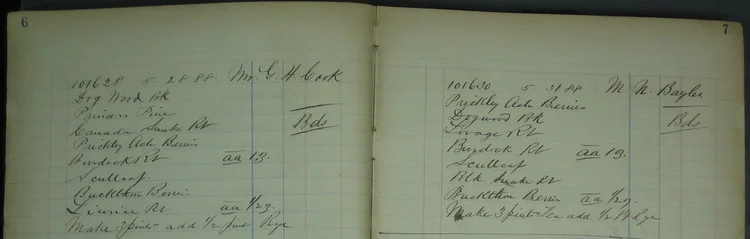 6
101628 5. 28 88. Mr. G. H. Cook
Dog Wood Bk
Canada Snake Rt
Bds
Prickly Ash Berris
Burdock Rt aa 13.
Scullcap
Buckthon Berris
Licorice Rt aa 1/23.
Make 3 pints add 1/2 pint Rye
7
101630 5. 31 88 M. N. Bayles
Prickly Ash Berries
Dogwood Bk
Bds
Lovage Rt
Burdock Rt aa 13.
Scullcap
Blk Snake Rt
Buckthon Berris aa 1/23
Make 3 pint Tea add 1/2 Pt Rye